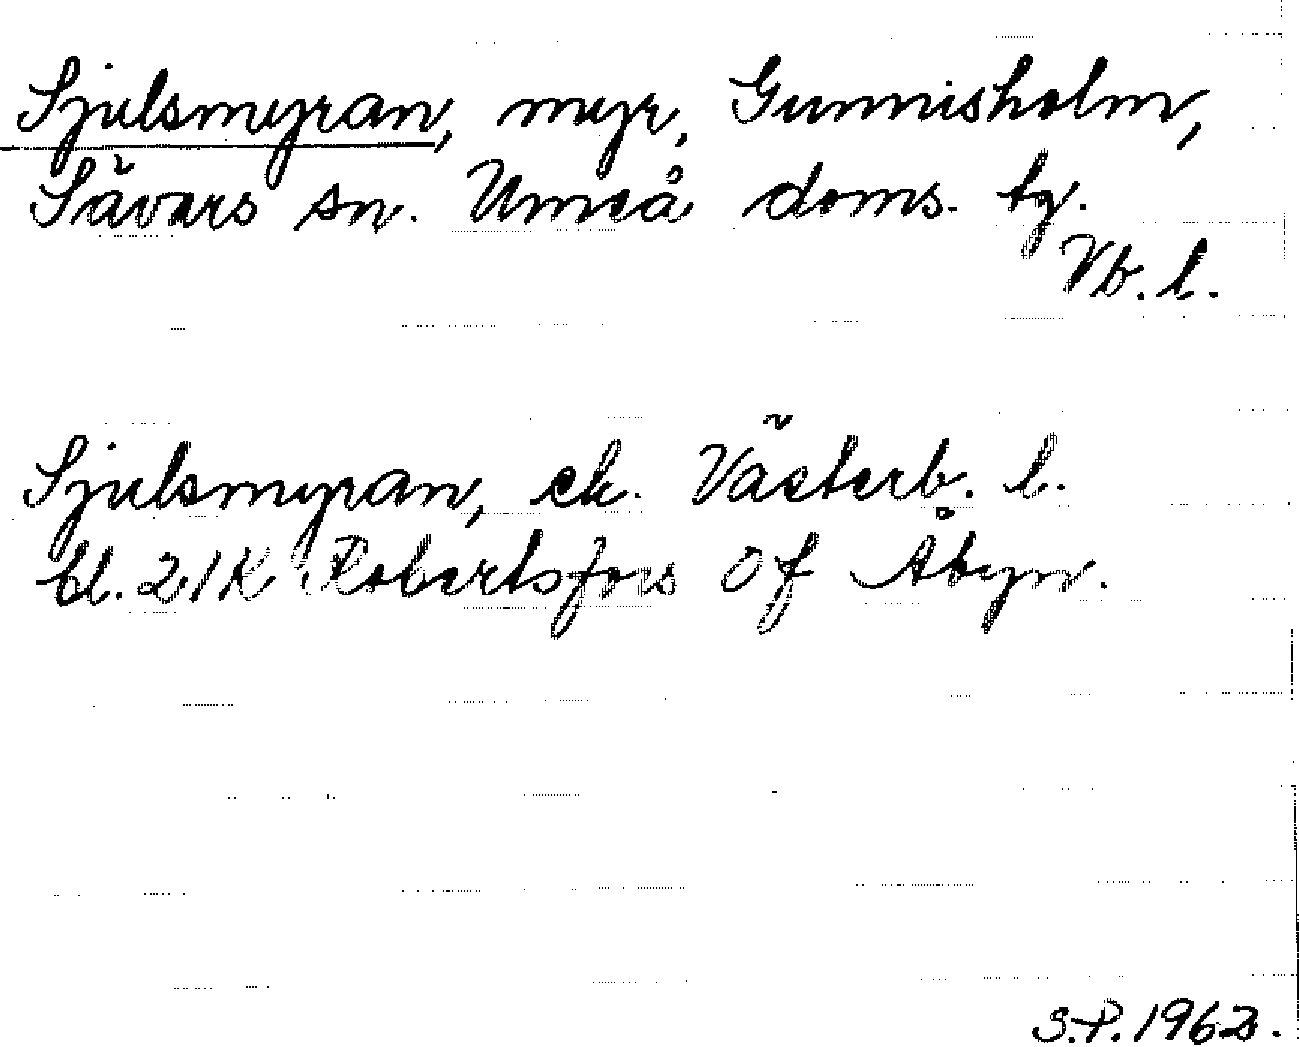 Sjulsmyran, myr, Gunnisholm,
Sävars sn. Umeå doms. tg.
Vb. l.
Sjulsmyran, ek. Västerb. l.
bl. 21K Robertsfors Öf Åbyn.
S.P. 1962.